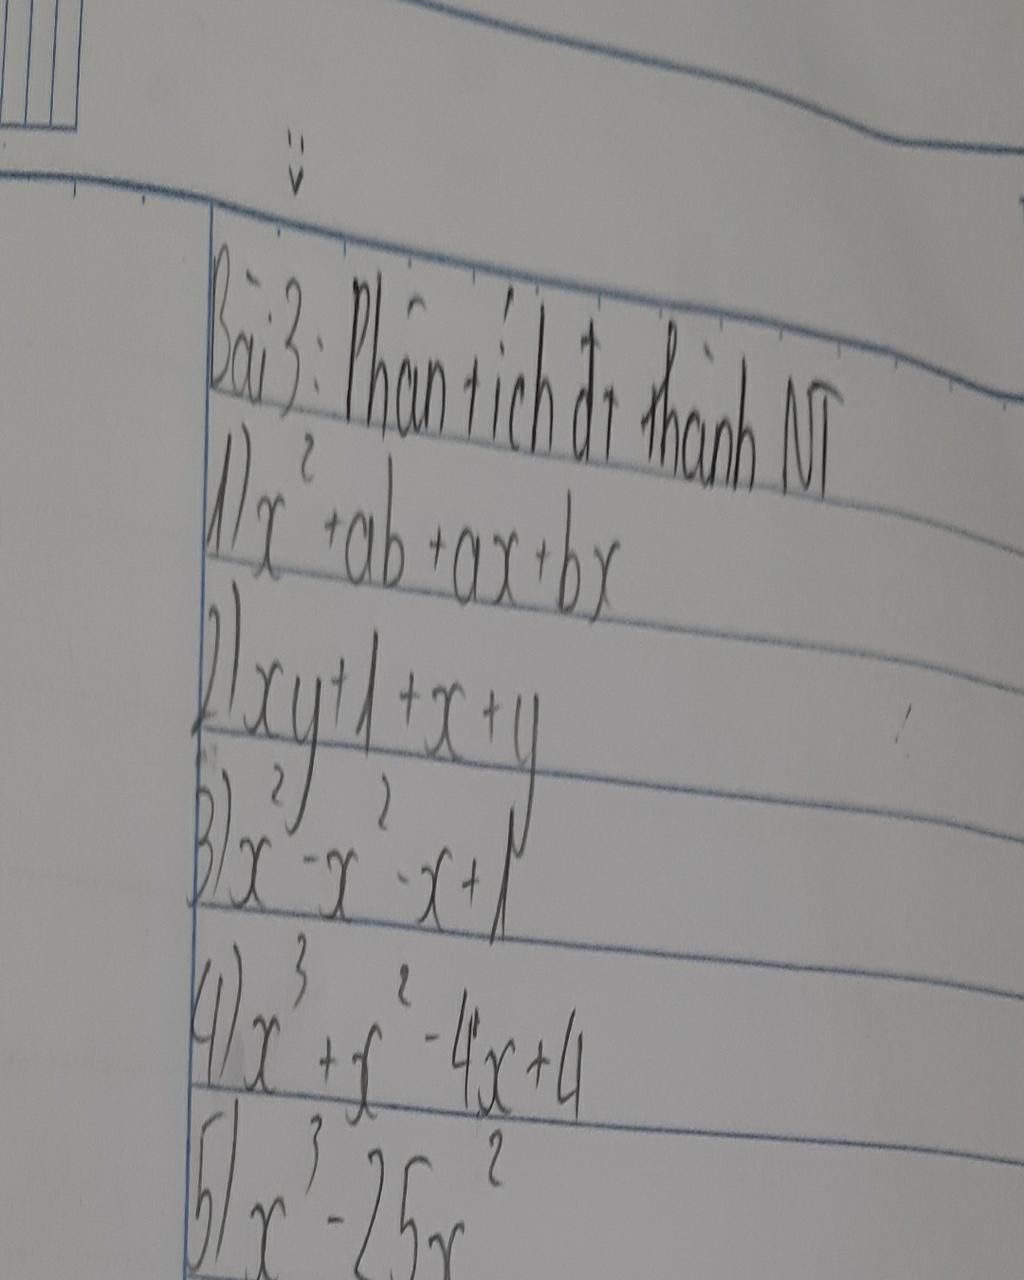 Bài 3: Phân tích đt thành NT
1) x² + ab + ax + bx
2) xy + 1 + x + y
3) x² - x² - x + 1
4) x³ + x² - 4x + 4
5) x³ - 25x²